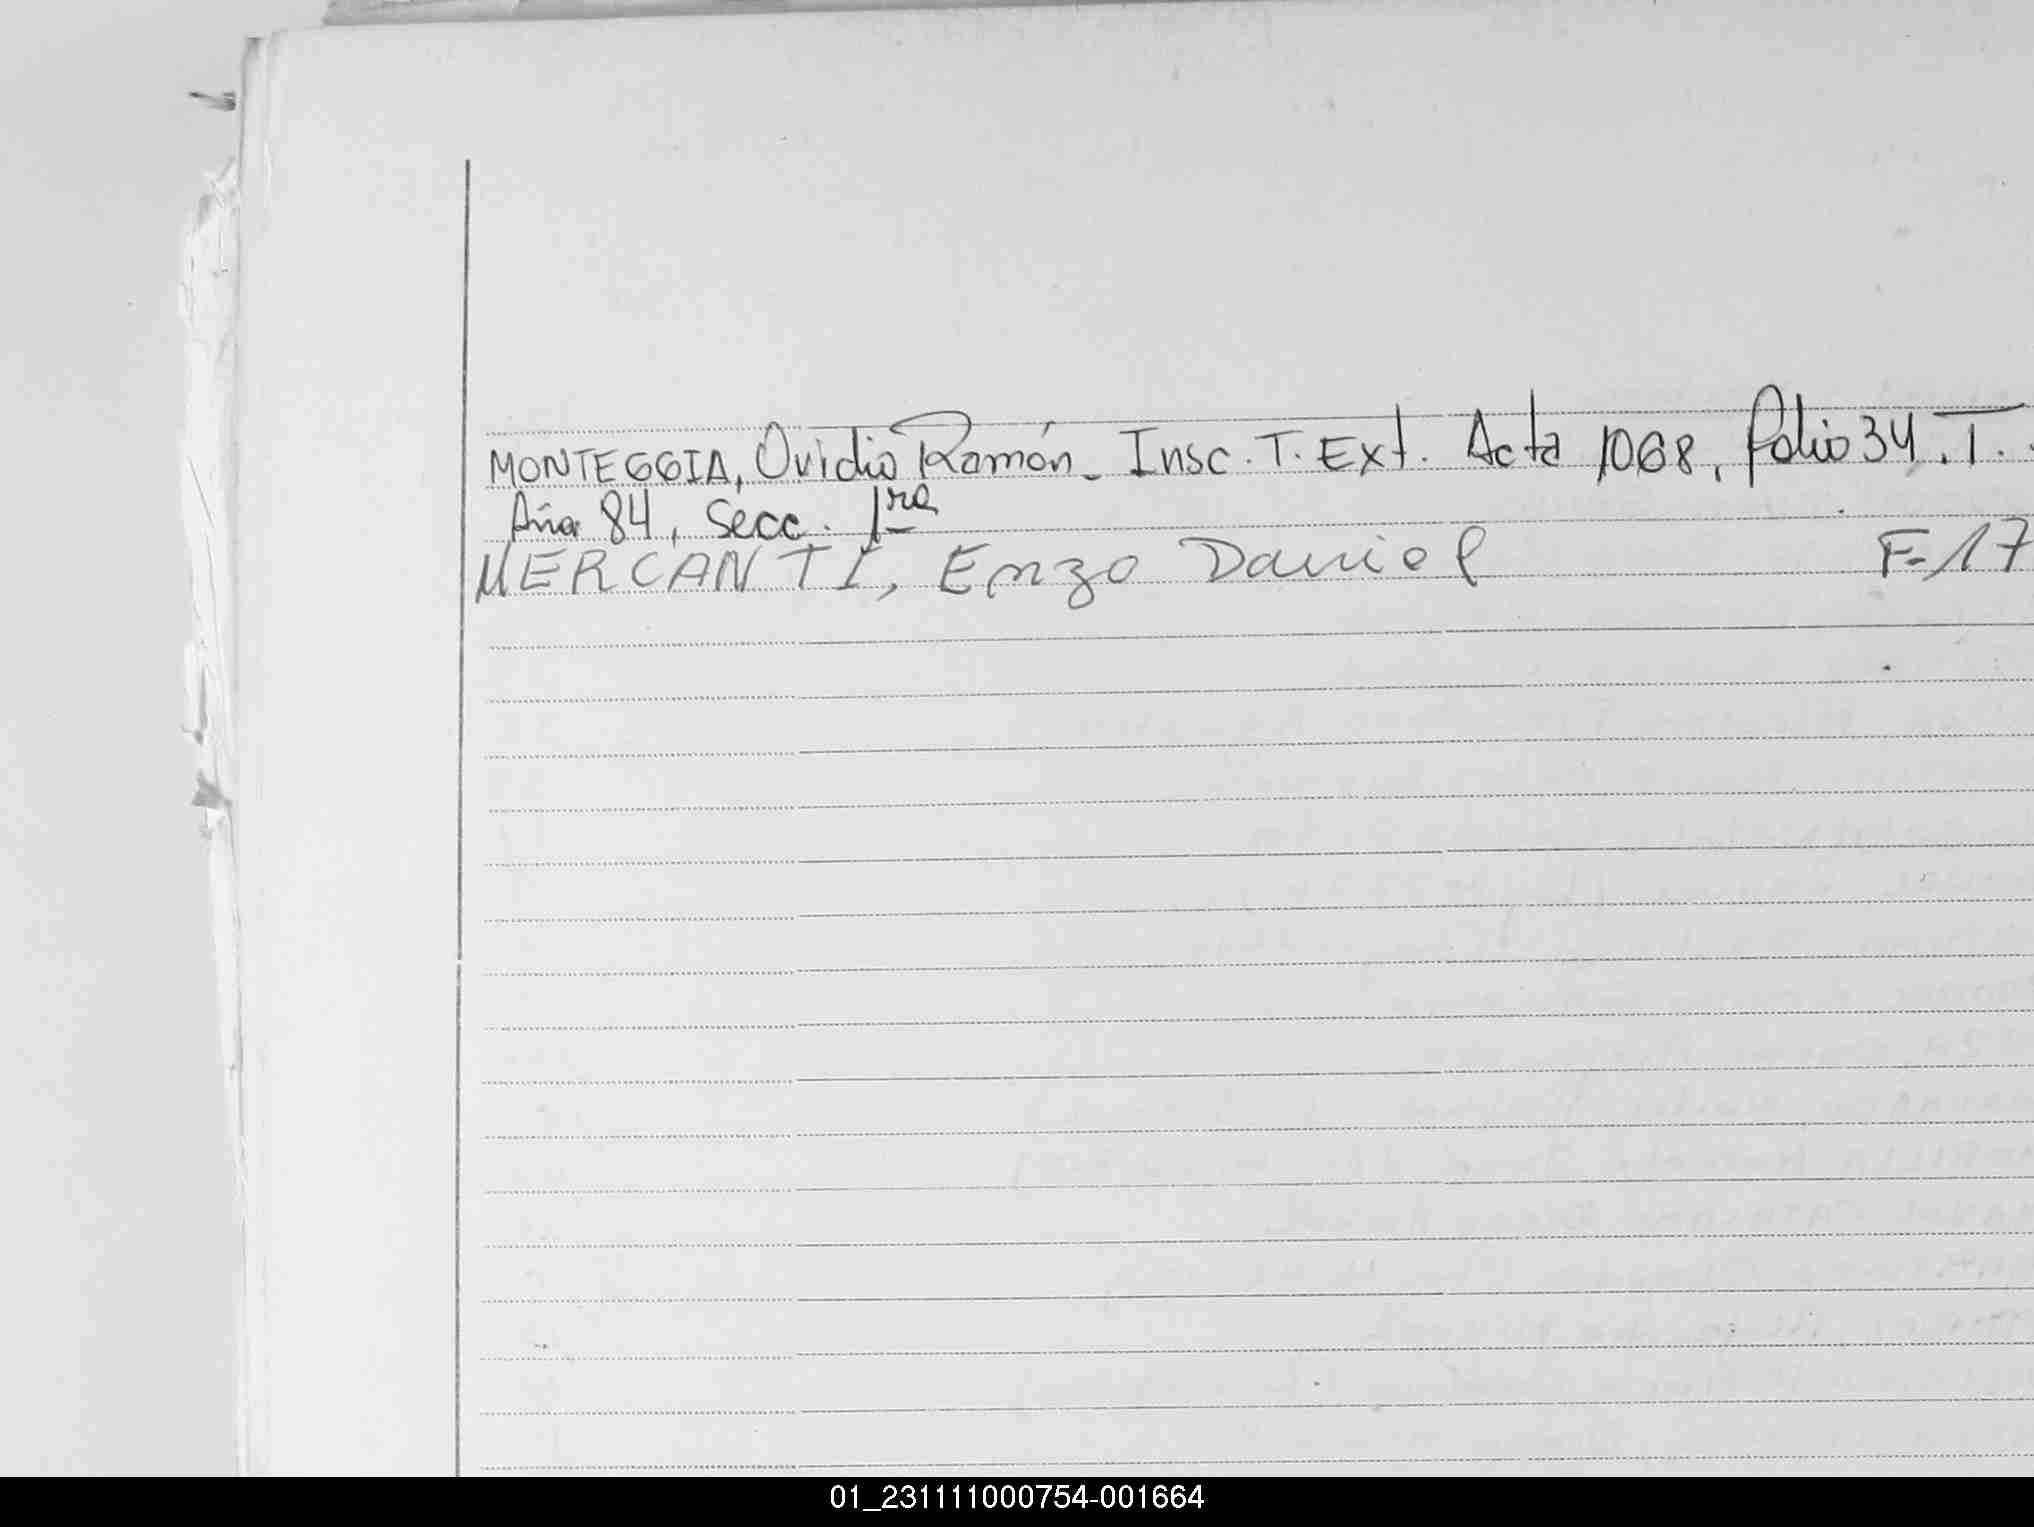 MONTEGGIA, Ovidio Ramón - Insc. T. Ext. Acta 1068, folio 34. T.
Año 84, Secc. 1ra
MERCANTI, Enzo Daniel F-17
01_231111000754-001664